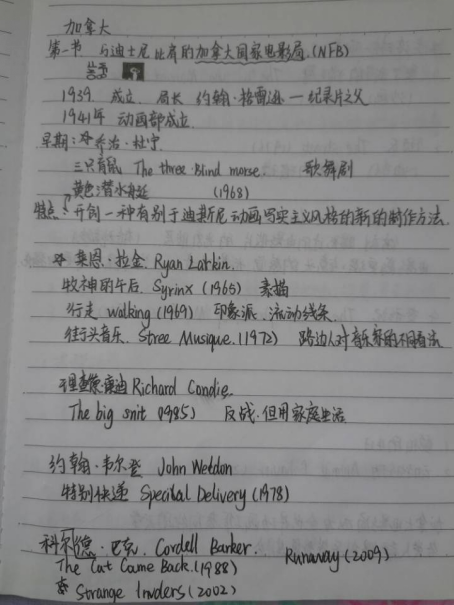 加拿大
第一节 与迪士尼比肩的加拿大国家电影局.(NFB)
1939. 成立. 局长 约翰·格雷逊 — 纪录片之父
1941年 动画部成立.
早期: 乔治·杜宁.
三只盲鼠 The three Blind morse. 歌舞剧
黄色潜水艇 (1968)
特点: 开创一种有别于迪斯尼动画写实主义风格的新的制作方法.
莱恩·拉金. Ryan Larkin.
牧神的午后. Syrinx (1965) 素描
行走 walking (1969) 印象派. 流动线条.
街头音乐. Stree Musique. (1972) 路边人对音乐家的不同看法
理查德·康迪 Richard Condie.
The big snit (1985) 反战·但用家庭生活
约翰·韦尔登 John Weldon
特别快递 Specital Delivery (1978)
科尔德·巴克. Cordell Barker. Runaway (2009)
The Cat Came Back. (1988)
Strange Invders (2002)